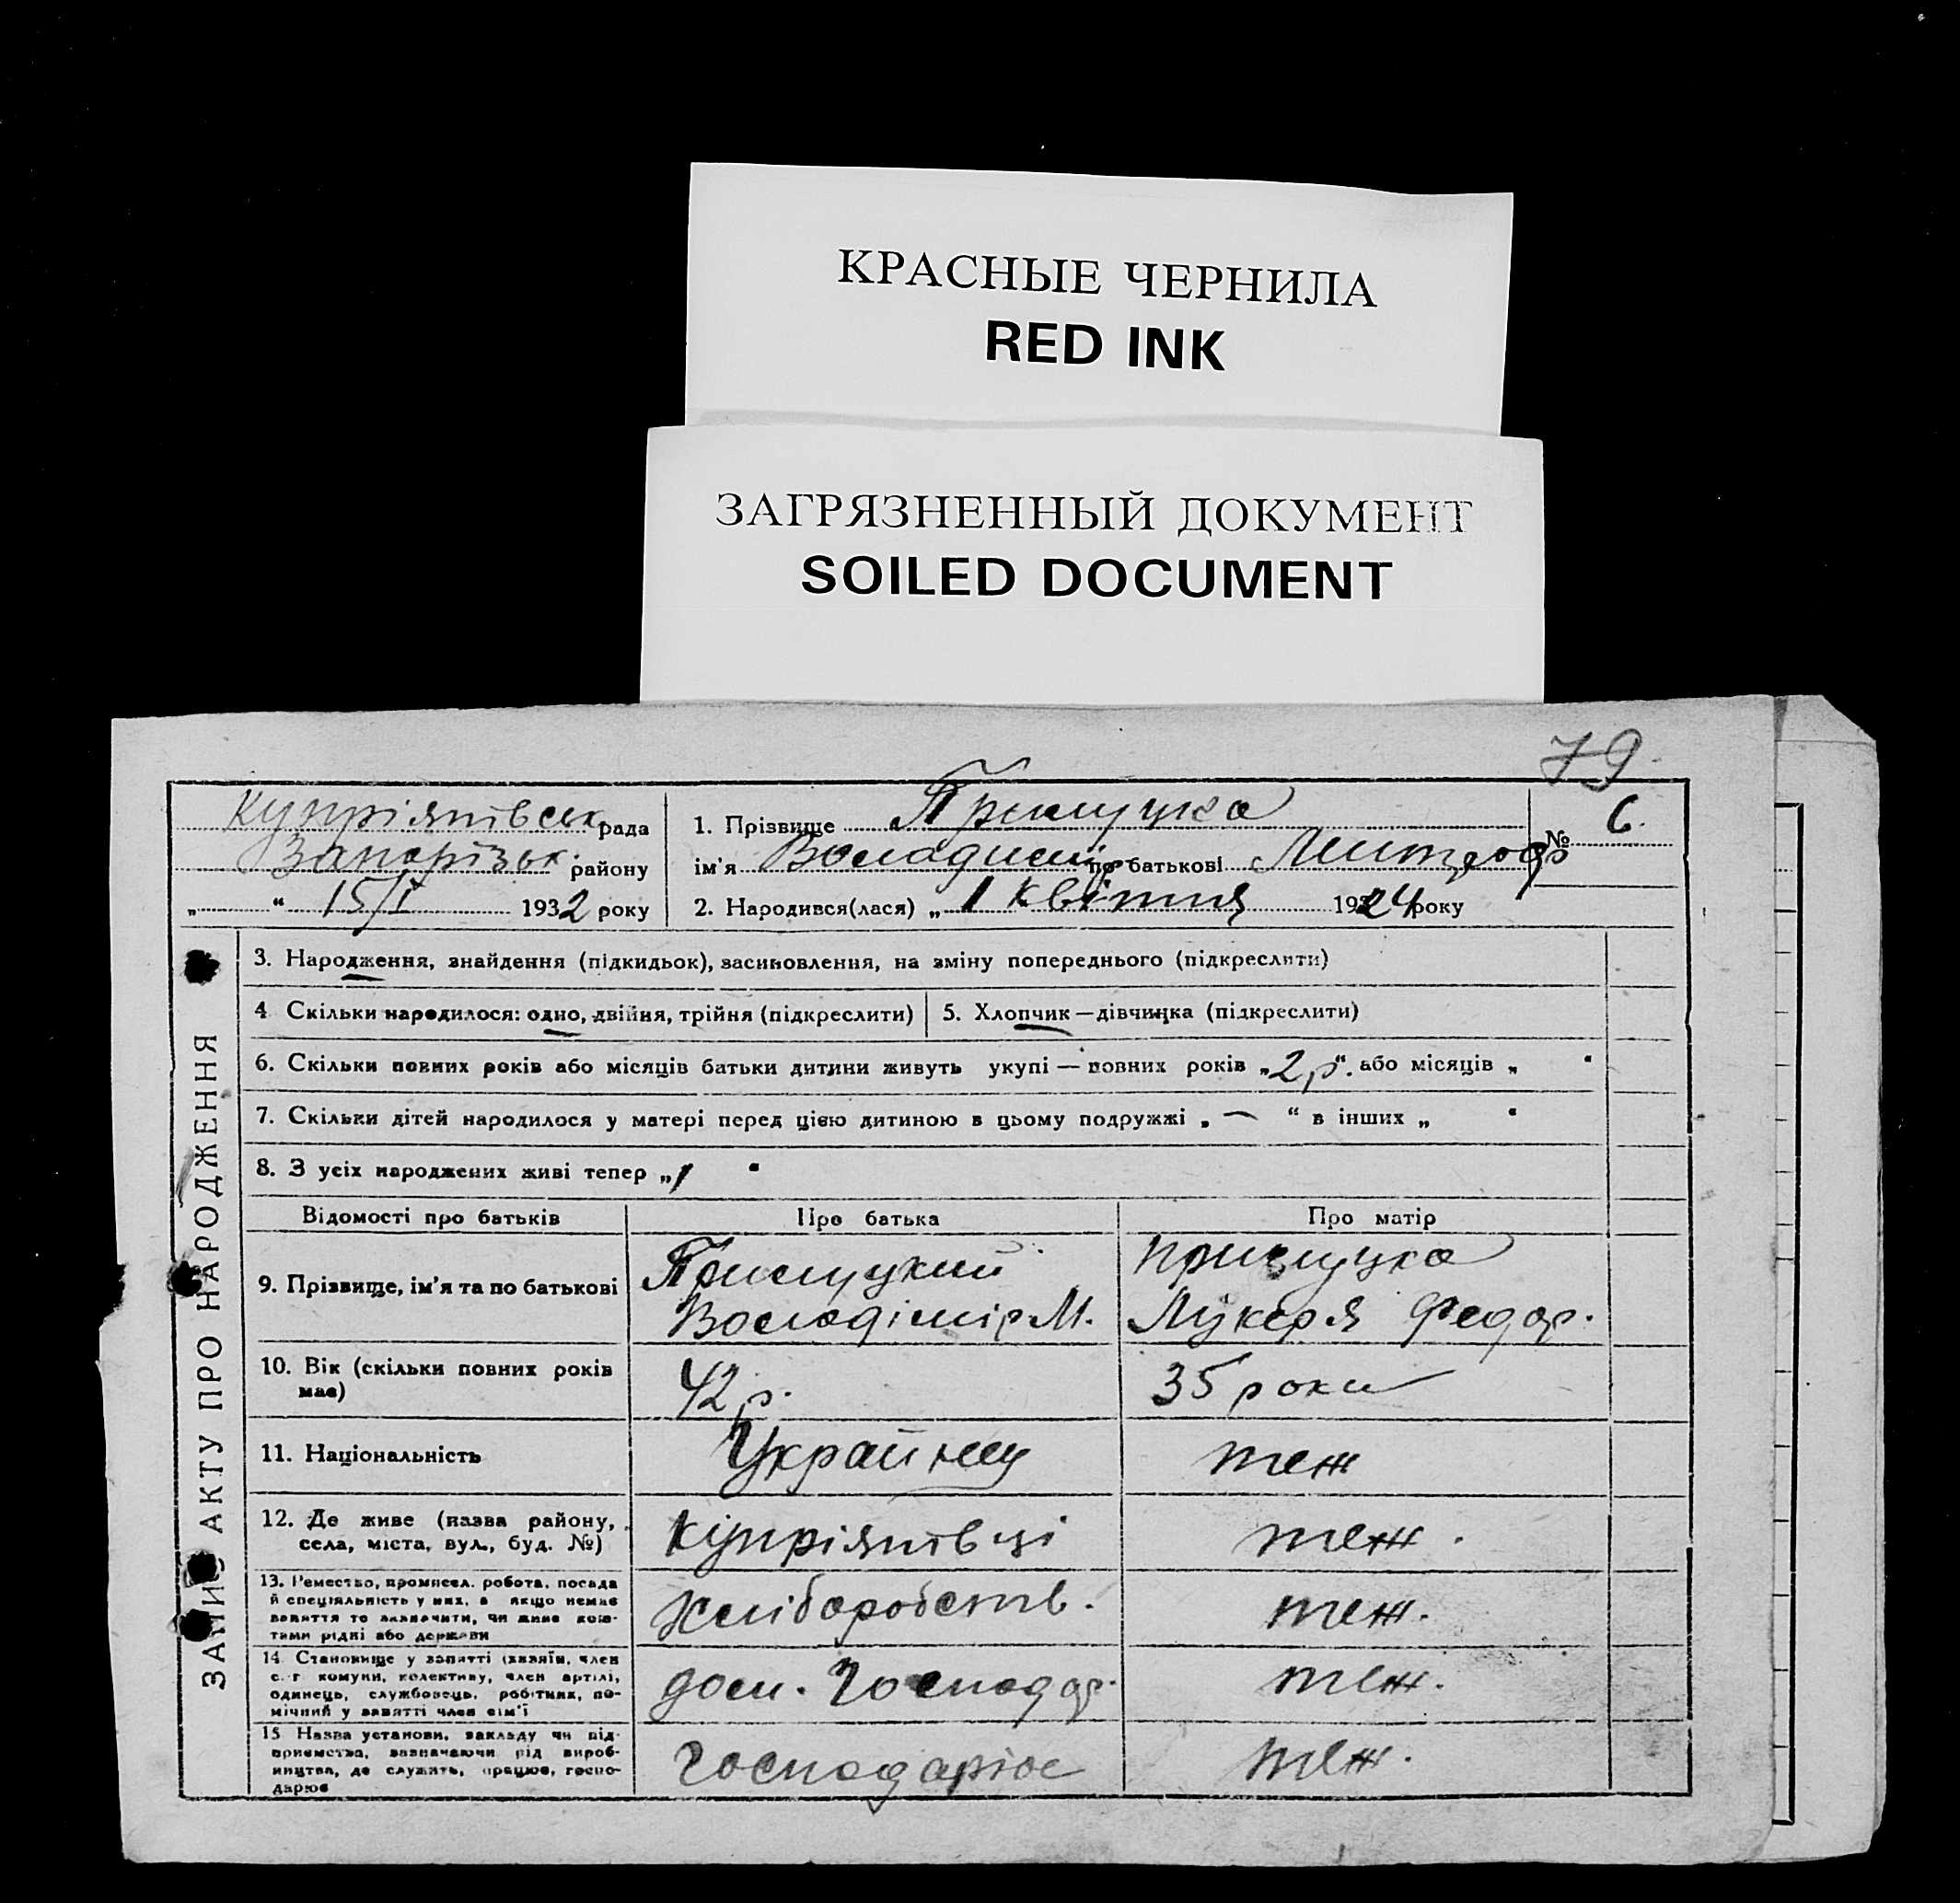 КРАСНЫЕ ЧЕРНИЛА
RED INK
ЗАГРЯЗНЕННЫЙ ДОКУМЕНТ
SOILED DOCUMENT
79.
Купріянівськ рада
Запорізьк. району
„ “ 15/I 1932 року
1. Прізвище Прилуцка
ім'я Володимір по батькові
2. Народився(лася) „ 1 квітня 1924 року
№ 6.
ЗАПИС АКТУ ПРО НАРОДЖЕННЯ
3. Народження, знайдення (підкидьок), засиновлення, на зміну попереднього (підкреслити)
4 Скільки народилося: одно, двійня, трійня (підкреслити)
5. Хлопчик — дівчинка (підкреслити)
6. Скільки повних років або місяців батьки дитини живуть укупі — повних років „2 р“. або місяців „ “
7. Скільки дітей народилося у матері перед цією дитиною в цьому подружжі „ — “ в інших „ “
8. З усіх народжених живі тепер „1 “
Відомості про батьків Про батька Про матір
9. Прізвище, ім'я та по батькові
Прилуцкий
Володімір М.
Прилуцка
Лукеря Федор.
10. Вік (скільки повних років
має)
42 р.
35 роки
11. Національність
Українец
теж
12. Де живе (назва району,
села, міста, вул., буд. №)
Купріянівці
теж.
13. Ремество, промисел. робота, посада
й спеціяльність у них, а якщо немає
заняття то зазначити, чи живе кош-
тами рідні або держави
Хліборобств.
теж.
14. Становище у занятті (хазяїн, член
с.-г комуни, колективу, член артілі,
одинець, службовець, робітник, по-
мічний у занятті член сім'ї
дом. Господар.
теж.
15 Назва установи, закладу чи під-
приємства, зазначаючи рід вироб-
ництва, де служить, працює, госпо-
дарює
Господарює
теж.